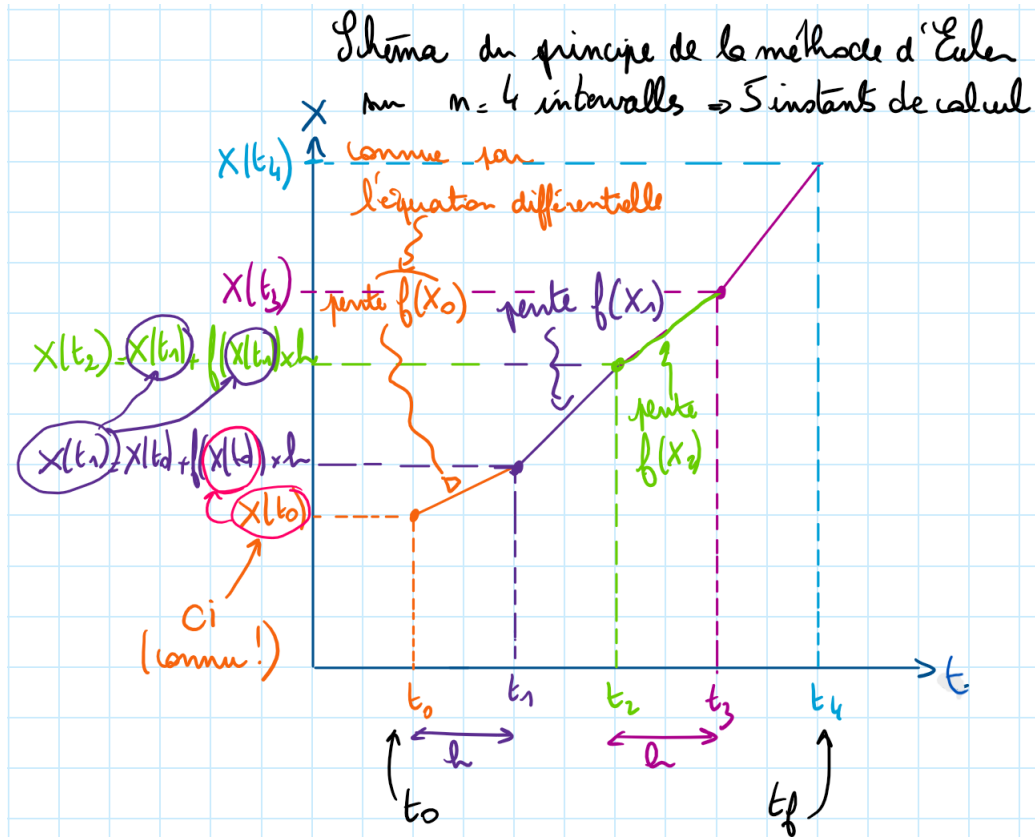 Schéma du principe de la méthode d'Euler
sur n = 4 intervalles ⇒ 5 instants de calcul
X
X(t₄)
connue par
l'équation différentielle
X(t₃)
pente f(X₀)
pente f(X₁)
X(t₂) = X(t₁) + f(X(t₁)) × h
pente
f(X₂)
X(t₁) = X(t₀) + f(X(t₀)) × h
X(t₀)
Ci
(connu !)
t
t₀ t₁ t₂ t₃ t₄
h h
t₀ tf